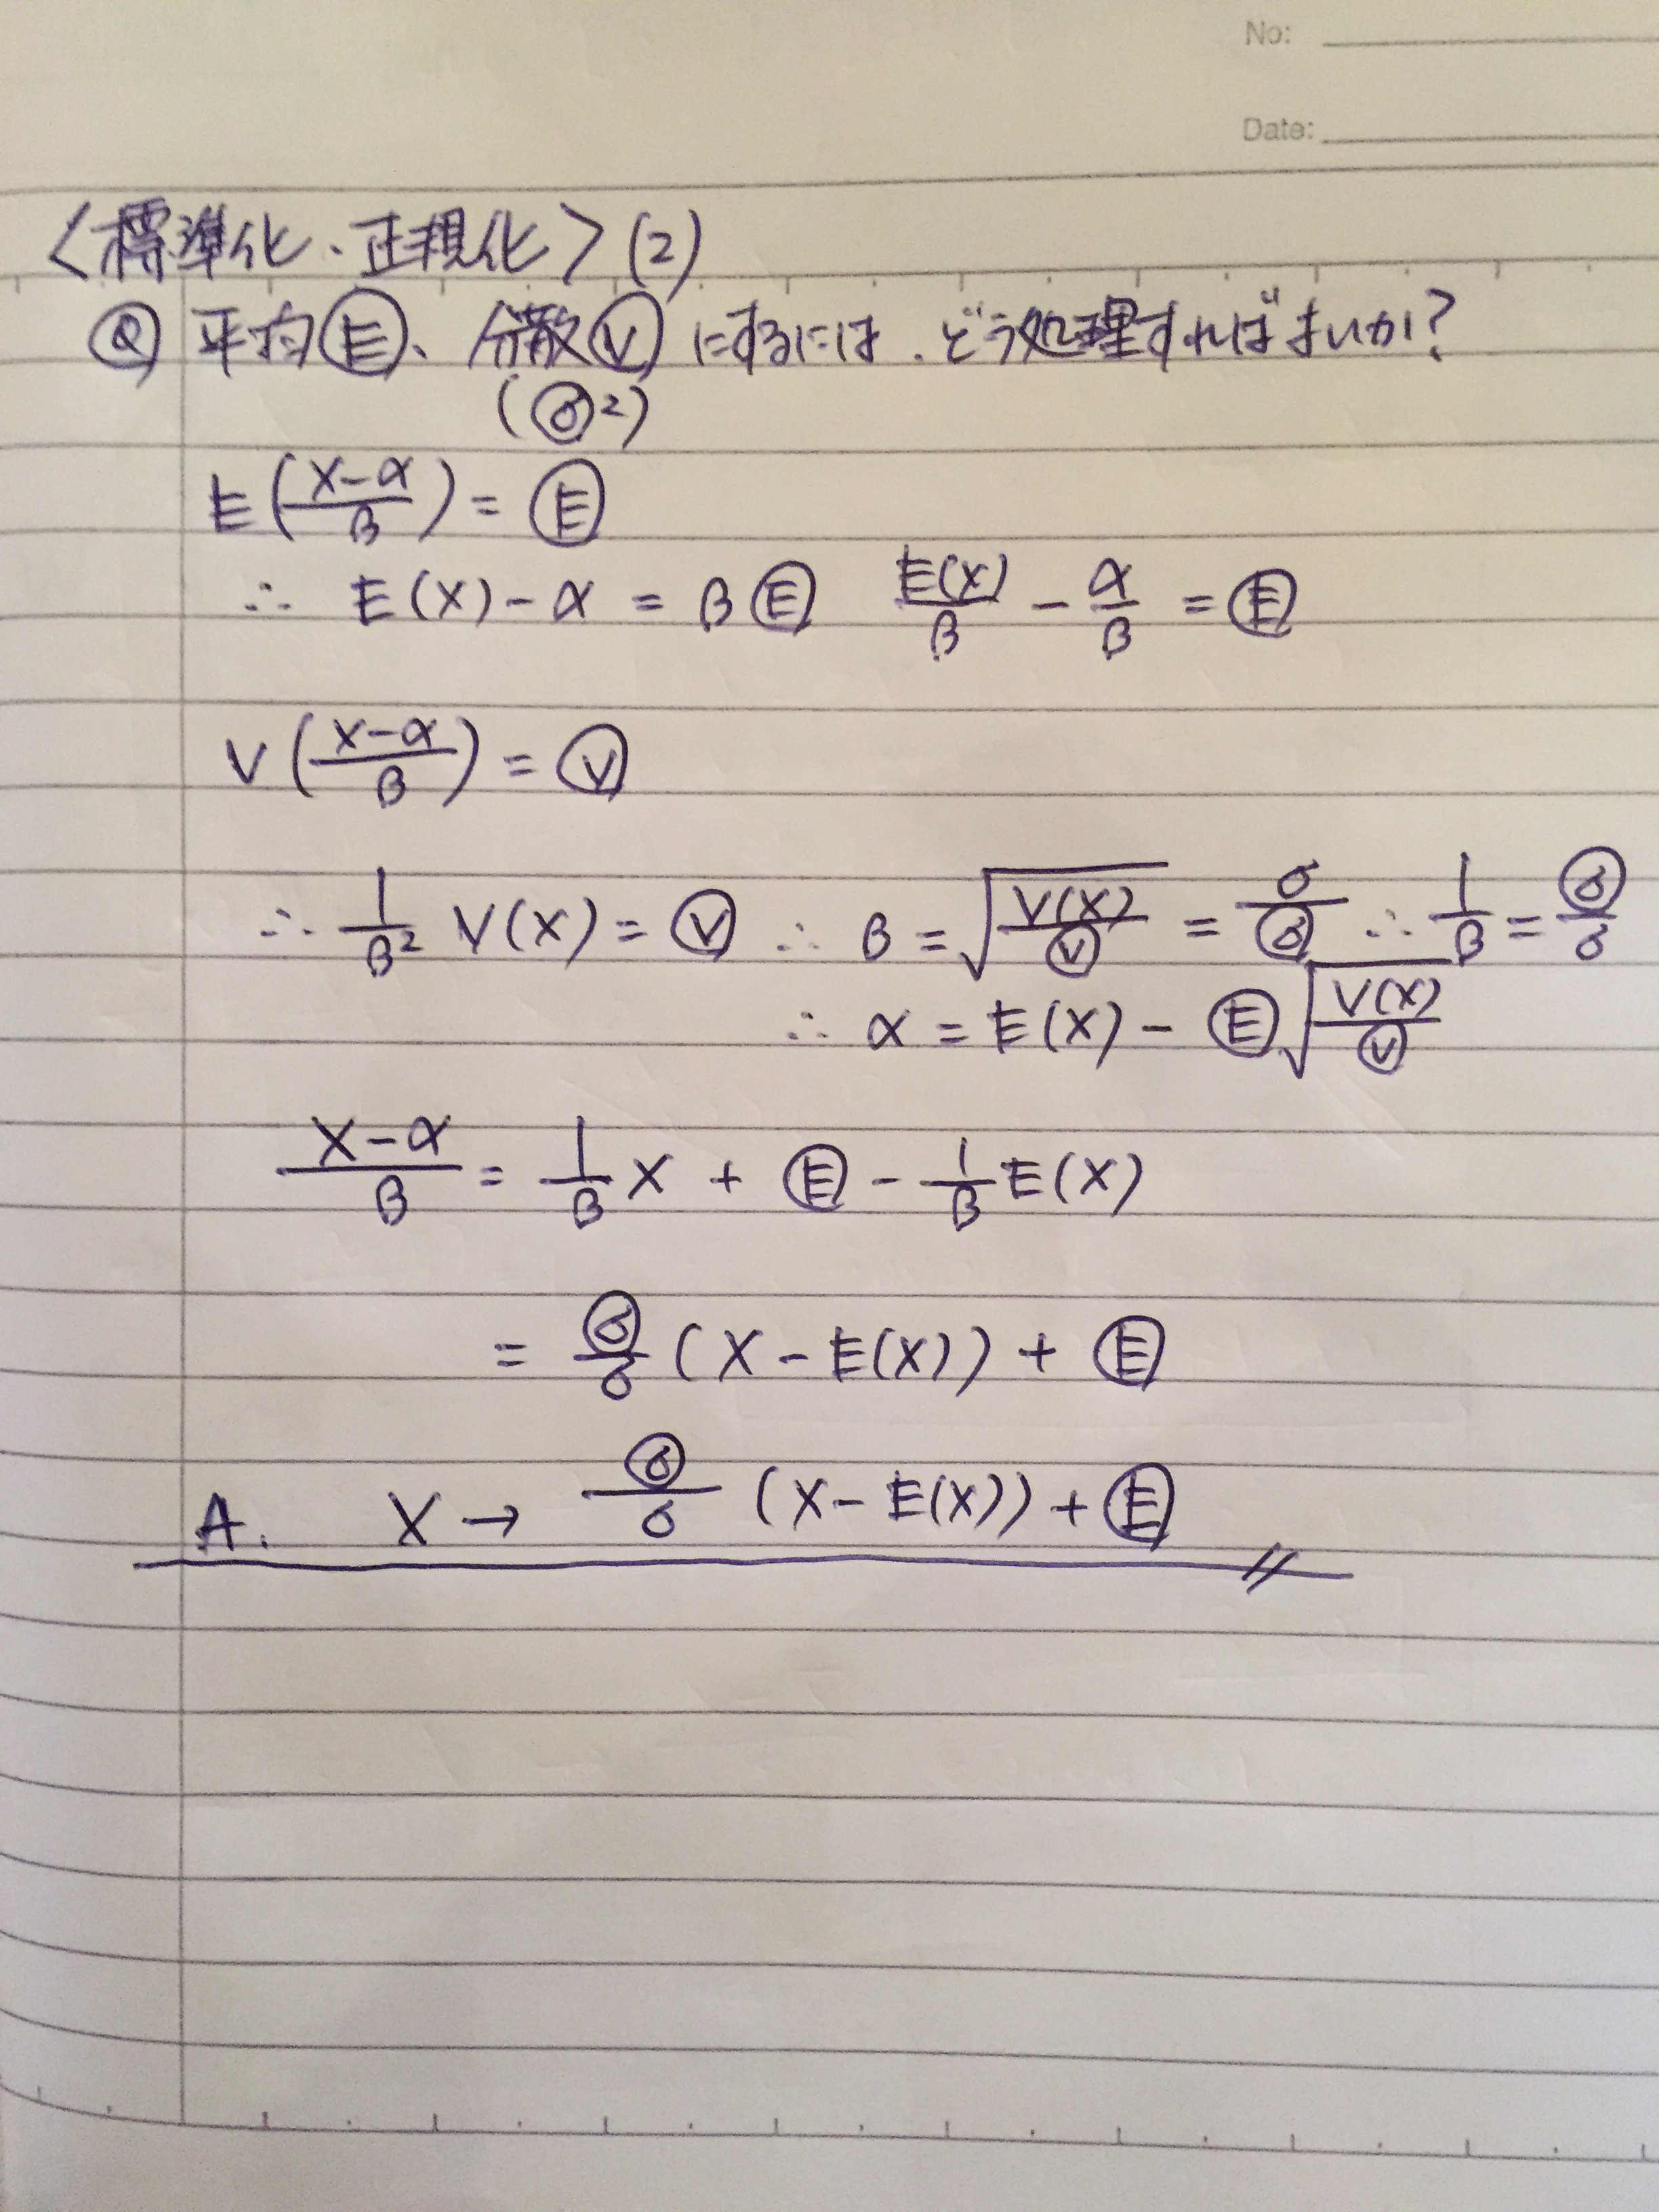 No:
Date:
〈標準化、正規化〉(2)
Ⓠ 平均Ⓔ、分散Ⓥにするには、どう処理すればよいか?
(ⓢ²)
E((X-α)/β) = Ⓔ
∴ E(X) - α = βⒺ  E(X)/β - α/β = Ⓔ
V((X-α)/β) = Ⓥ
∴ 1/β² V(X) = Ⓥ ∴ β = √(V(X)/Ⓥ) = σ/(σ) ∴ 1/β = (σ)/σ
∴ α = E(X) - Ⓔ√(V(X)/Ⓥ)
(X-α)/β = 1/β X + Ⓔ - 1/β E(X)
= (σ)/σ (X - E(X)) + Ⓔ
A. X → (σ)/σ (X - E(X)) + Ⓔ